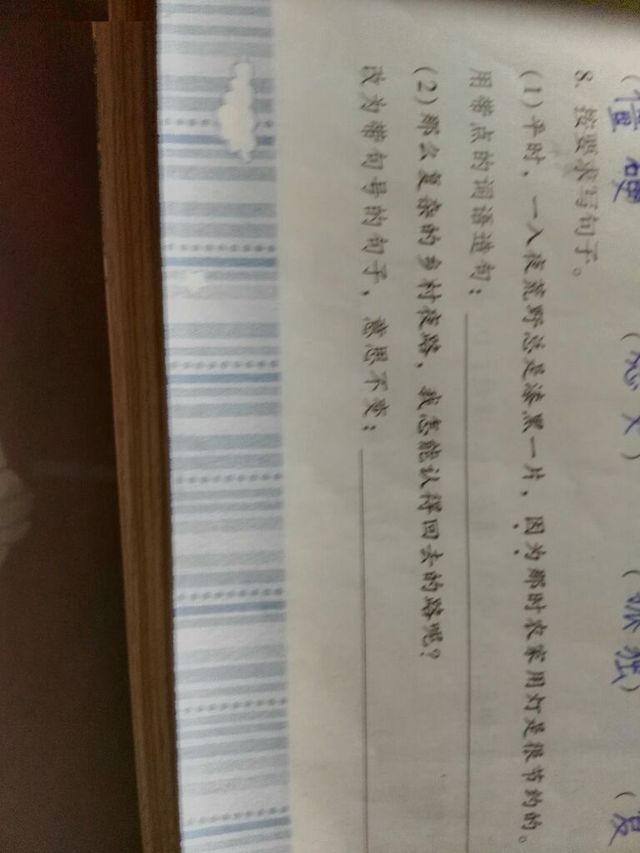 8. 按要求写句子。
(1)平时，一入夜荒野总是漆黑一片，因为那时农家用灯是很节约的。
用带点的词语造句：
(2)那么复杂的乡村夜路，我怎能认得回去的路呢？
改为带句号的句子，意思不变：